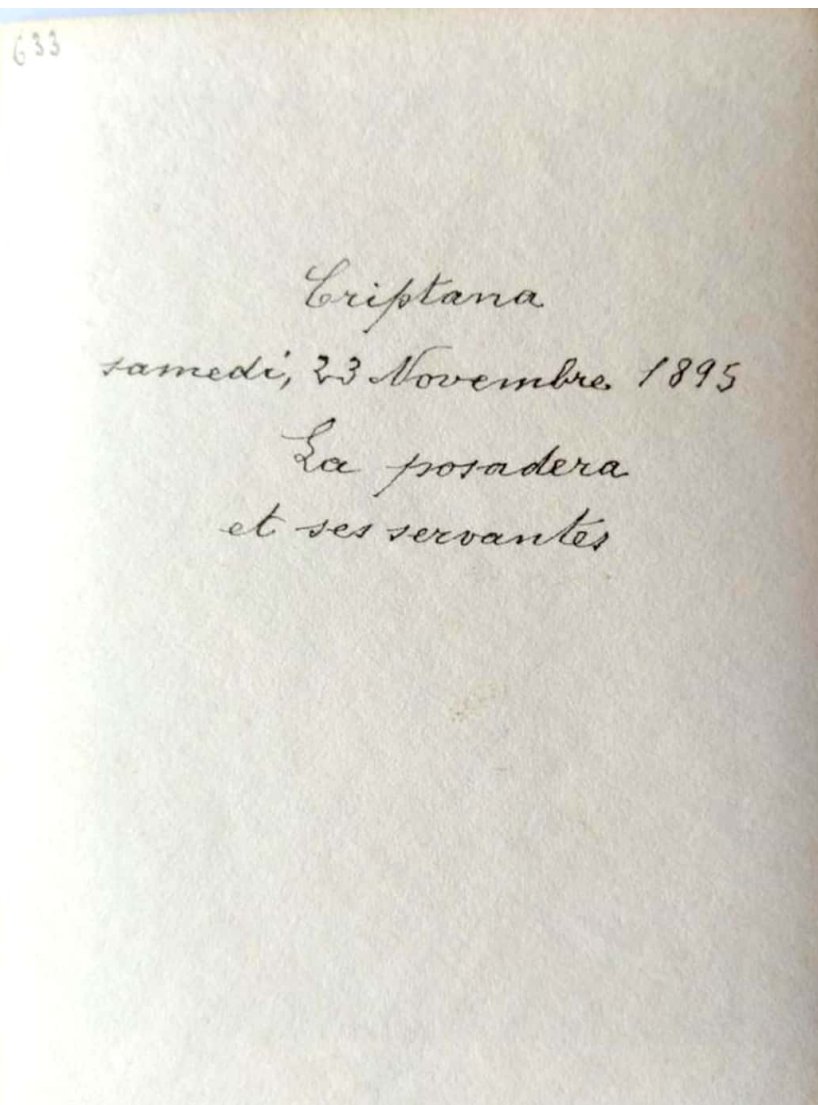 633
Criptana
samedi, 23 Novembre 1895
La posadera
et ses servantes